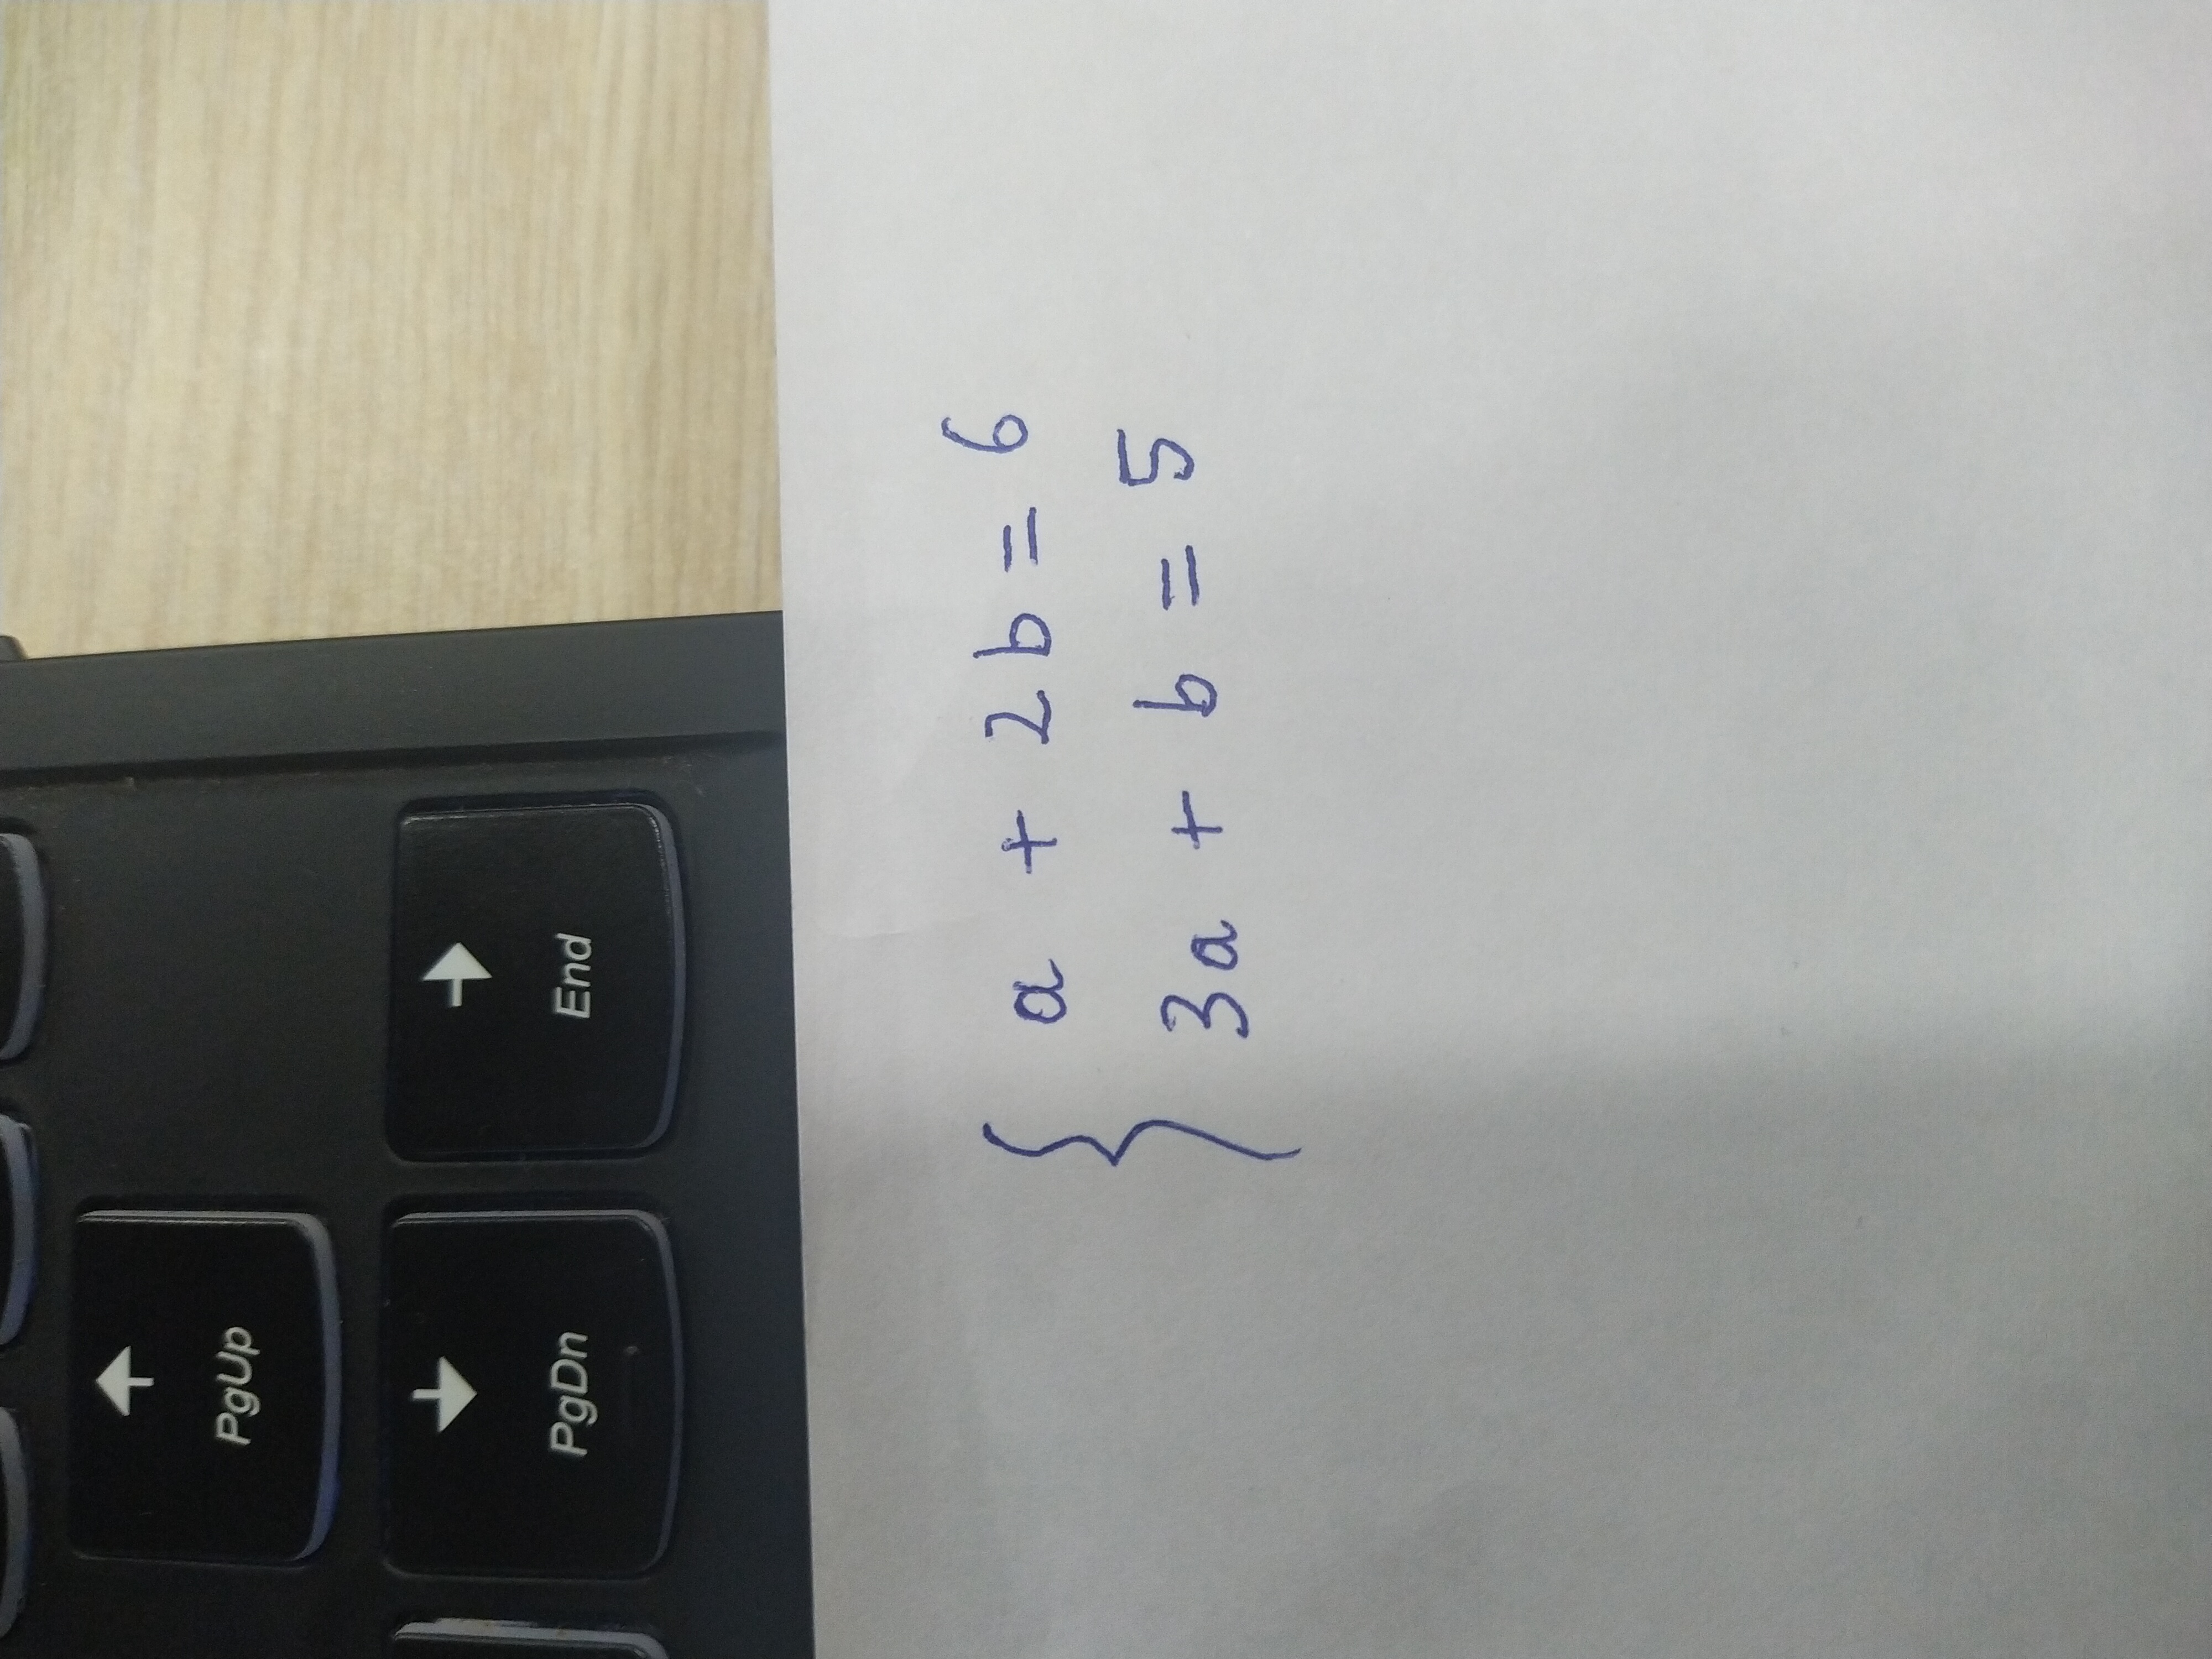 PgUp
PgDn
End
a + 2b = 6
3a + b = 5